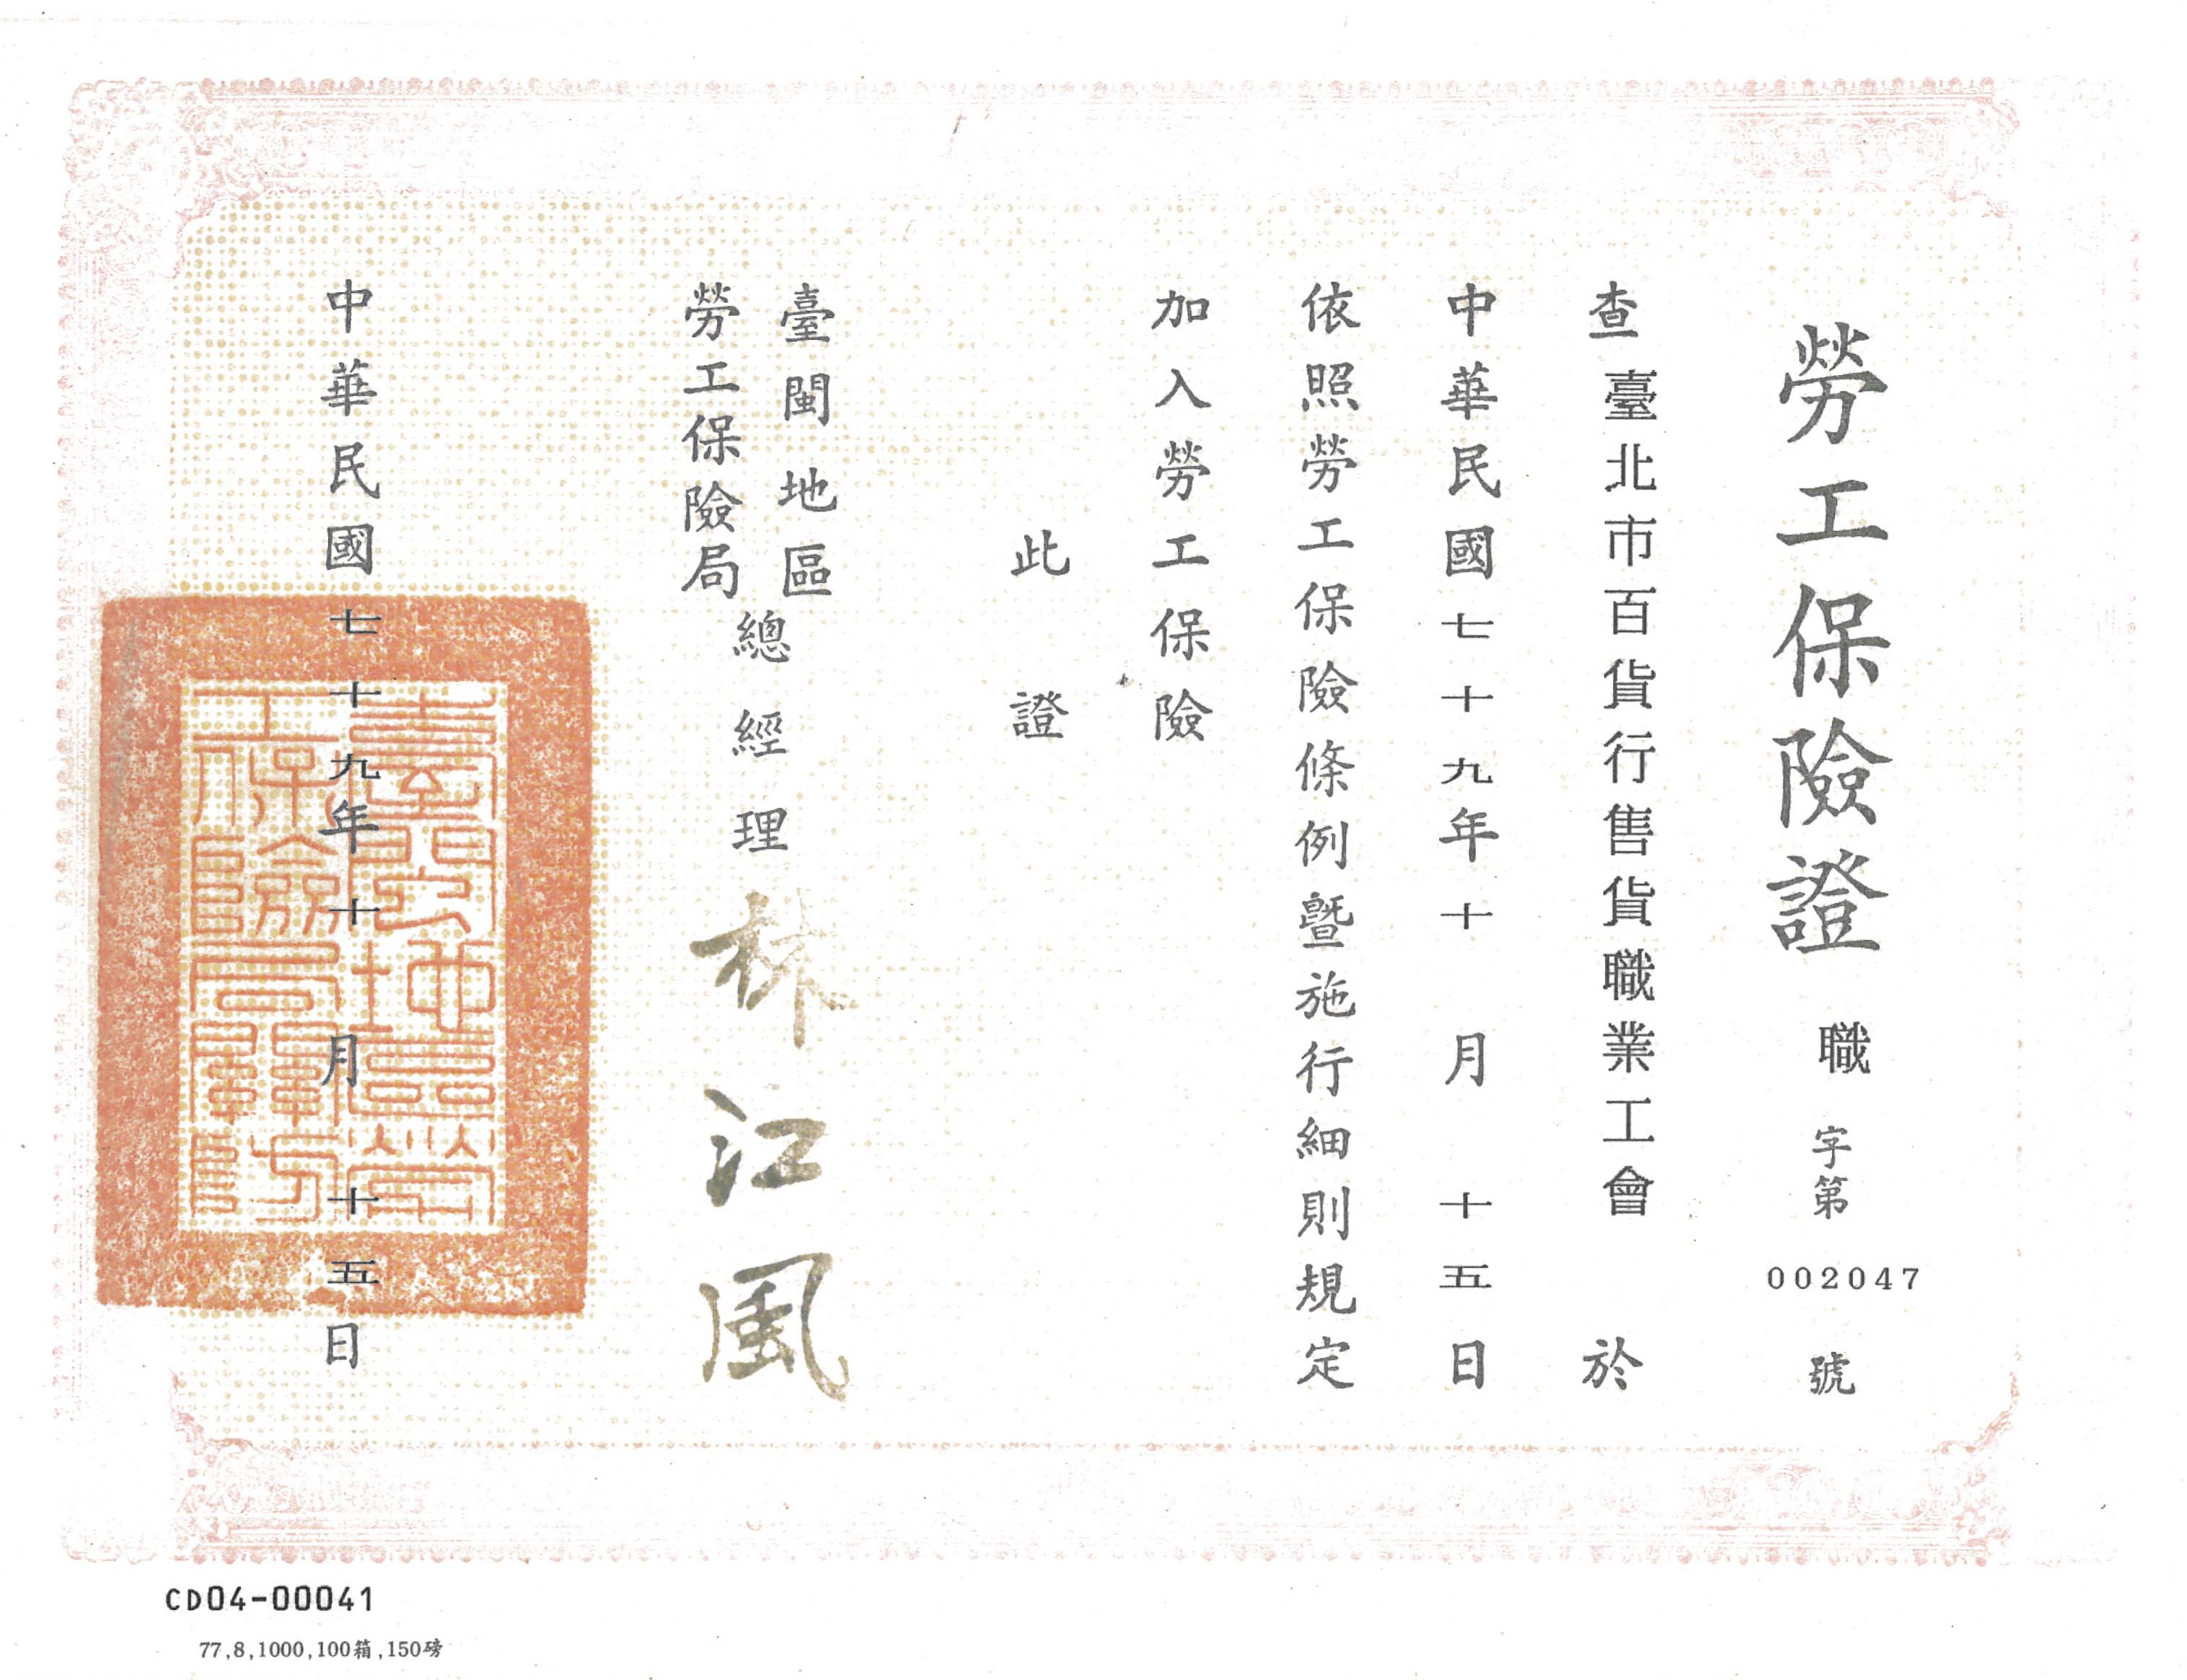 勞工保險證 職字第002047號
查臺北市百貨行售貨職業工會於
中華民國七十九年十月十五日
依照勞工保險條例暨施行細則規定
加入勞工保險
此證
臺閩地區
勞工保險局
總經理 林江風
中華民國七十九年十月十五日
CD04-00041
77,8,1000,100箱,150磅